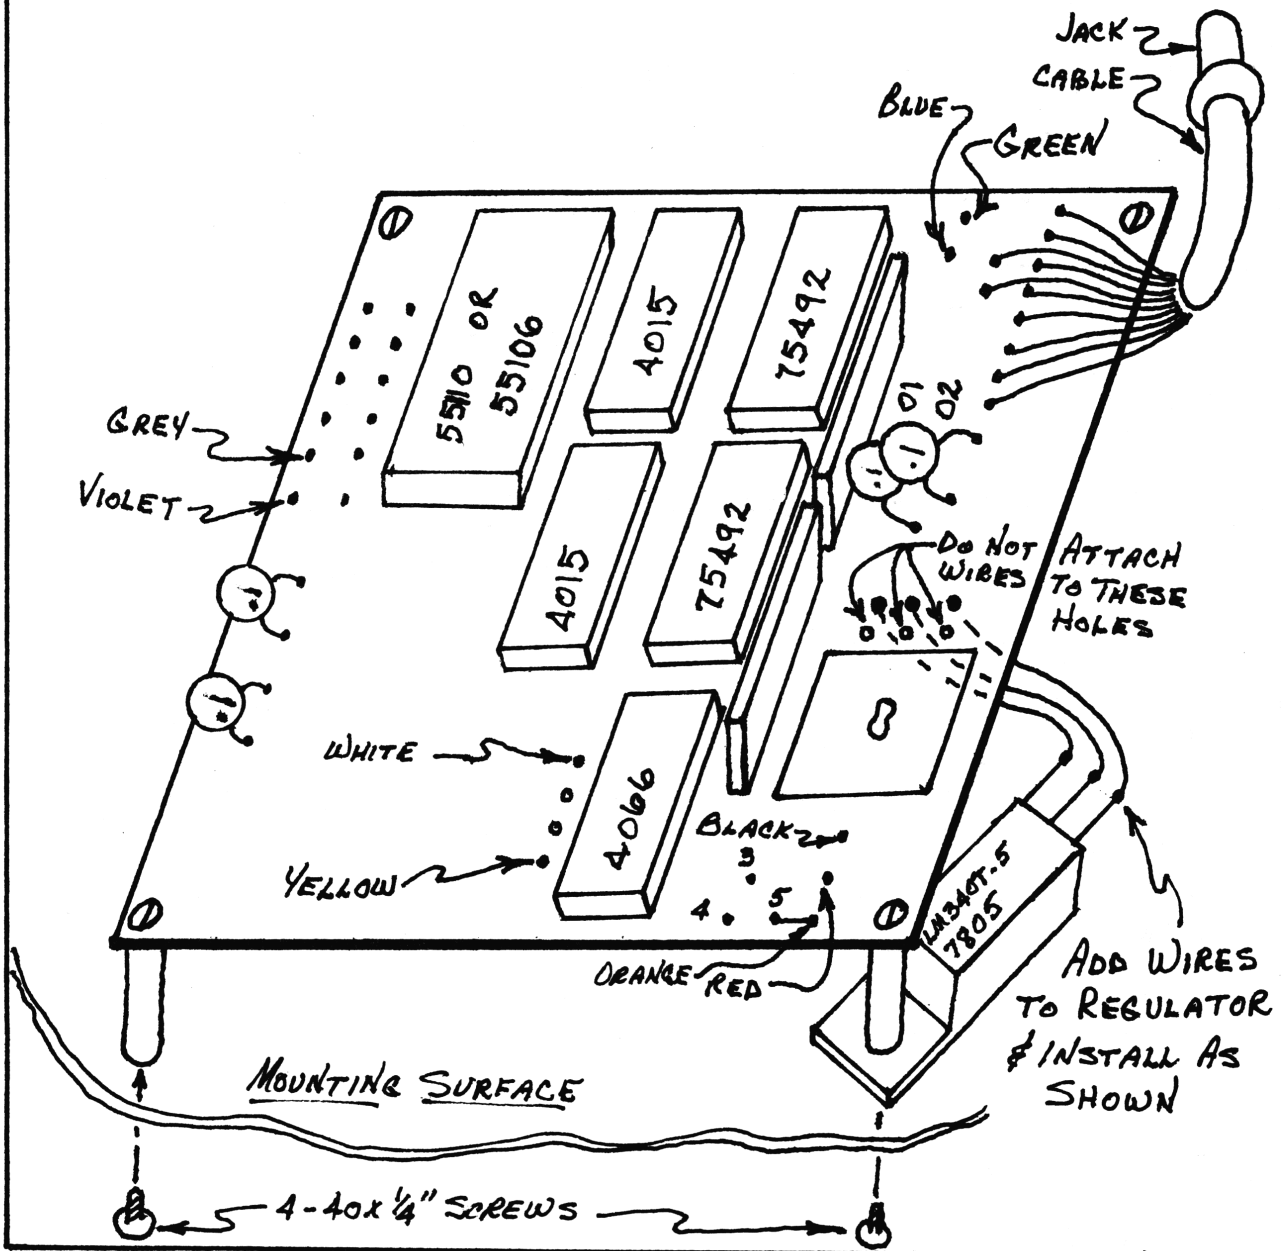 JACK
CABLE
BLUE
GREEN
5510 OR
55106
4015
75492
01
02
GREY
VIOLET
4015
75492
DO NOT ATTACH
WIRES TO THESE
HOLES
WHITE
8
4066
BLACK
3
YELLOW
4
5
LM340T-5
7805
ORANGE
RED
ADD WIRES
TO REGULATOR
& INSTALL AS
SHOWN
MOUNTING SURFACE
4-40X 1/4" SCREWS